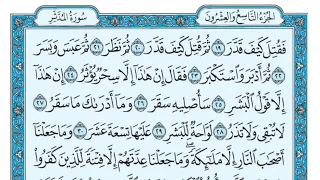 الجزء التاسع والعشرون سورة المدثر
فَقُتِلَ كَيْفَ قَدَّرَ ١٩ ثُمَّ قُتِلَ كَيْفَ قَدَّرَ ٢٠ ثُمَّ نَظَرَ ٢١ ثُمَّ عَبَسَ وَبَسَرَ
٢٢ ثُمَّ أَدْبَرَ وَاسْتَكْبَرَ ٢٣ فَقَالَ إِنْ هَٰذَا إِلَّا سِحْرٌ يُؤْثَرُ ٢٤ إِنْ هَٰذَا
إِلَّا قَوْلُ الْبَشَرِ ٢٥ سَأُصْلِيهِ سَقَرَ ٢٦ وَمَا أَدْرَىٰكَ مَا سَقَرُ ٢٧
لَا تُبْقِي وَلَا تَذَرُ ٢٨ لَوَّاحَةٌ لِّلْبَشَرِ ٢٩ عَلَيْهَا تِسْعَةَ عَشَرَ ٣٠ وَمَا جَعَلْنَا
أَصْحَٰبَ النَّارِ إِلَّا مَلَٰٓئِكَةً وَمَا جَعَلْنَا عِدَّتَهُمْ إِلَّا فِتْنَةً لِّلَّذِينَ كَفَرُوا